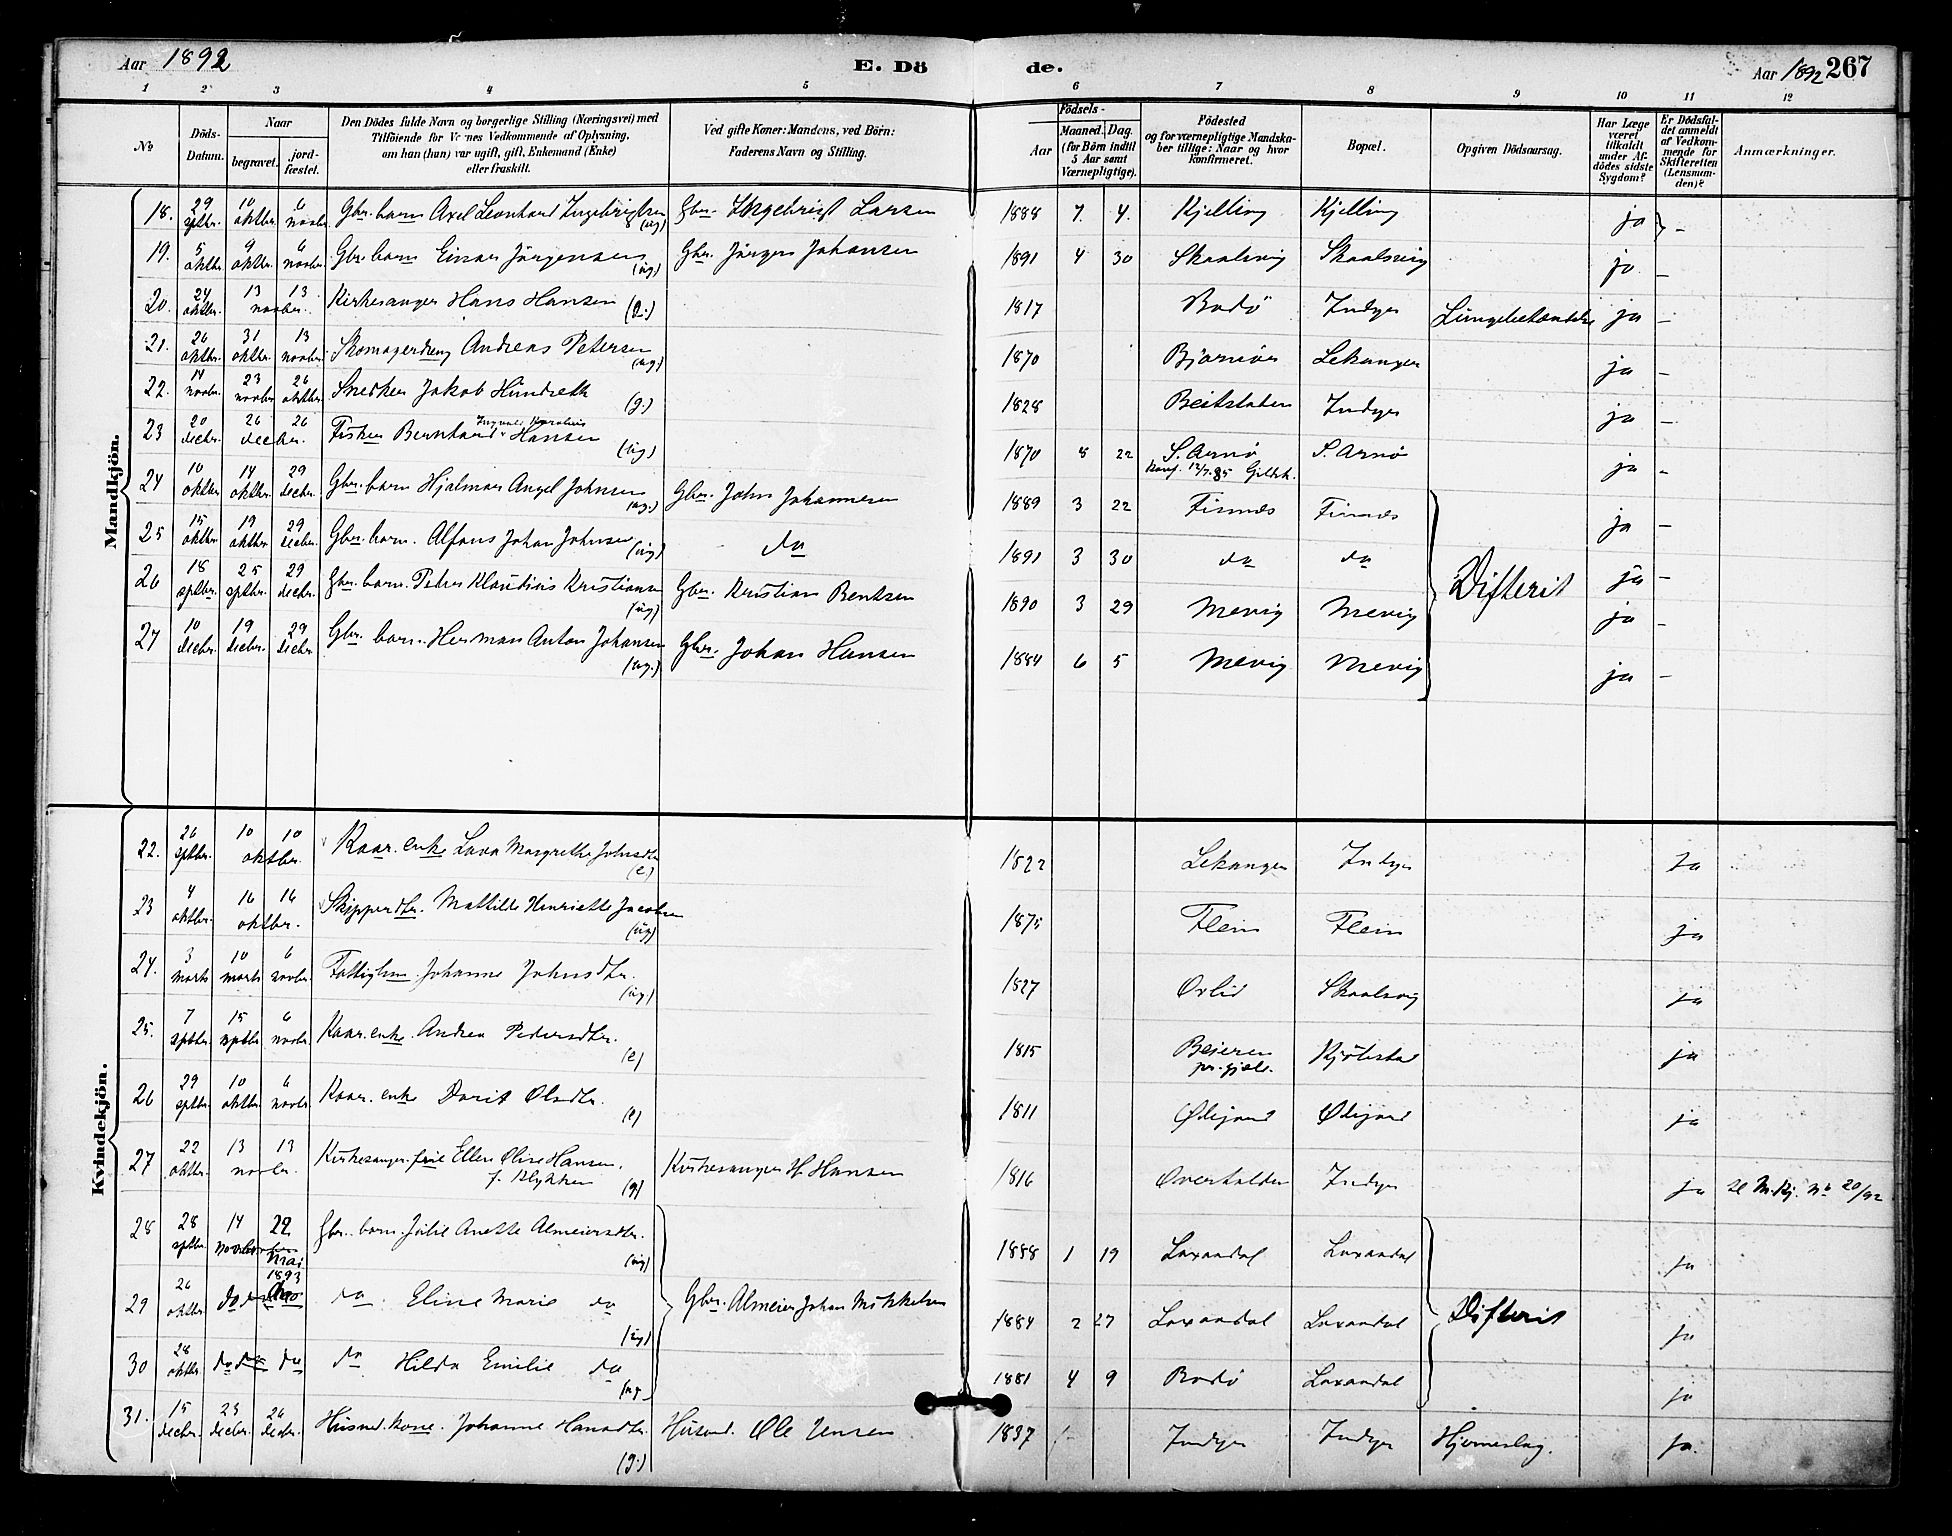 Aar 1892
E. Dö de.
Aar 1892 267
1 2 3 4 5 6 7 8 9 10 11 12
No
Döds-Datum.
Naar
begravet.
jord-fæstet.
Den Dödes fulde Navn og borgerlige Stilling (Næringsvei) med
Tilföiende for Vornes Vedkommende af Oplysning,
om han (hun) var ugift, gift, Enkemand (Enke)
eller fraskilt.
Ved gifte Koner: Mandens, ved Börn:
Faderens Navn og Stilling.
Födsels-
Aar
Maaned. Dag.
(for Börn indtil
5 Aar samt
Værnepligtige).
Födested
og for værnepligtige Mandska-
ber tillige: Naar og hvor
konfirmeret.
Bopæl.
Opgiven Dödsaarsag.
Har Læge
været
tilkaldt
under Af-
dödes sidste
Sygdom?
Er Dödsfal-
det anmeldt
af Vedkom-
mende for
Skifteretten
(Lensman-
den)?
Anmærkninger.
Mandkjön.
18. 29 sptbr. 10 oktbr. 6 novbr. Gbr. barn Axel Leonhard Ingebrigtsen (ug) Gbr. Ingebrigt Larsen 1888 7. 4. Kjelling Kjelling ja –
19. 5 oktbr. 9 oktbr. 6 novbr. Gbr. barn Einar Jörgensen (ug) Gbr. Jörgen Johansen 1891 4 30 Skaalsvig Skaalsvig ja –
20. 24 oktbr. 13 13 novbr. Kirkesanger Hans Hansen (g.) 1817 Bodö Indyr Lungebetændelse ja –
21. 26 oktbr. 31 oktbr. 13 novbr. Skomagerdreng Andreas Petersen (ug) 1870 Bjarnöes Lekanger ja –
22. 14 novbr. 23 novbr. 26 oktbr. Snedker Jakob Hundseth (g.) 1828 Beitstaden Indyr ja –
23 20 decbr. 26 26 decbr. Fisker Bernhard Ingvald Karolius Hansen (ug) 1870 8 22 S. Arnö konf. 12/7.85 Gildsk. S. Arnö ja –
24 10 oktbr. 14 oktbr. 29 decbr. Gbr. barn Hjalmar Angel Johnsen (ug.) Gbr. John Johannesen 1889 3 22 Finnæs Finnæs ja –
25 15 oktbr. 19 oktbr. 29 decbr. Gbr. barn. Alfons Johan Johnsen (ug) do 1891 3 30 do do ja –
26 18 sptbr. 25 sptbr. 29 decbr. Gbr. barn. Petrus Klaudius Kristiansen (ug) Gbr. Kristian Bentsen 1890 3 29 Mevig Mevig Difterit ja –
27 10 decbr. 19 decbr. 29 decbr. Gbr. barn. Herman Anton Johansen (ug.) Gbr. Johan Hansen 1884 6 5 Mevig Mevig ja –
Kvindekjön.
22. 26 sptbr. 10 10 oktbr. Kaar. enke Lava Margrethe Johnsdtr (e.) 1822 Lekanger Indyr Ja
23 4 oktbr. 16 16 oktbr. Skipperdtr. Mathilde Henriette Jacobsen (ug) 1875 Flein Flein ja
24. 3 marts 10 marts 6 novbr. Fattiglem Johanne Johnsdtr. (ug.) 1827 Ørlid Skaalsvig ja
25. 7 sptbr. 15 sptbr. 6 novbr. Kaar. enke. Andrea Pedersdtr. (e) 1815 Beieren Kjölstad ja
26 29 sptbr. 10 oktbr. 6 novbr. Kaar. enke Dorit Olsdtr. (e) 1811 Ødejord Ødejord ja
27 22 oktbr. 13 13 novbr. Kirkesanger frue Ellen Oline Hansen. f. Blykken (g) Kirkesanger H. Hansen 1816 Overhalden Indyr ja se M.Kj. No 20/92
28 28 sptbr. 14 novbr. 22 mai 1893 Gbr. barn. Julie Anette Almeiersdtr. (ug) 1888 1 19 Laxaadal Laxaadal ja
29 26 oktbr. do do do. Eline Marie do (ug) Gbr. Almeier Johan Mikkelsen 1884 2 27 Laxaadal Laxaadal Difterit ja
30 28 oktbr. do do do do Hilda Emilie do (ug. 1881 4 9 Bodö Laxaadal ja
31. 15 decbr. 23 decbr. 26 decbr. Husmd. kone. Johanne Hansdtr. (g.) Husmd. Ole Jensen 1837 Indyr Indyr Hjerneslag. ja.